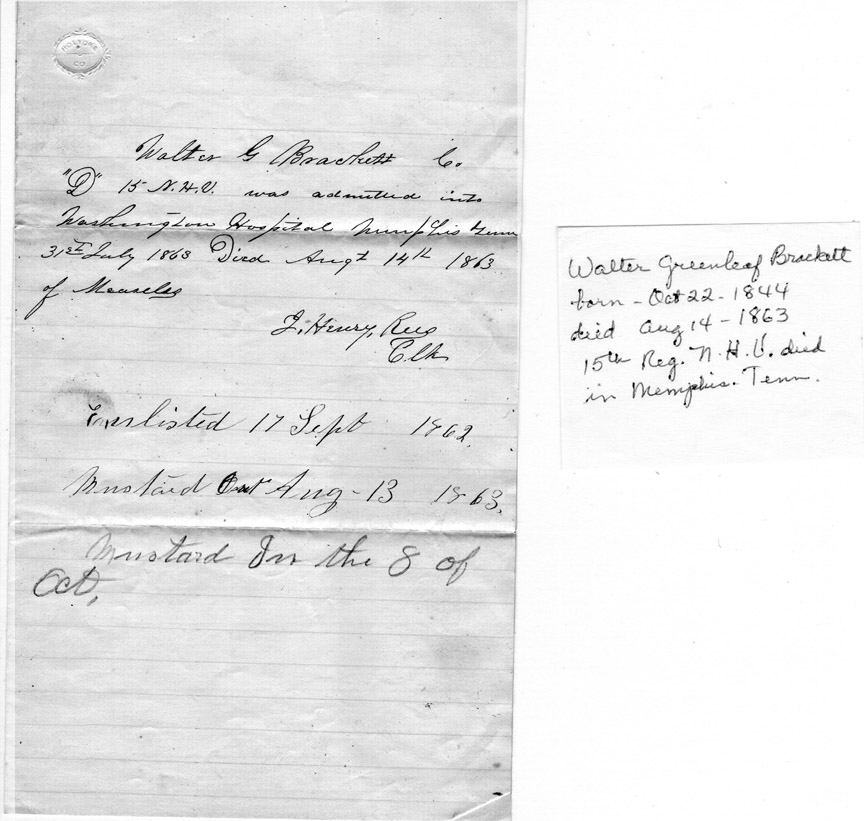 HOLYOKE
CO
Walter G Brackett Co.
"D" 15 N.H.V. was admitted into
Washington Hospital Memphis Tenn
31st July 1863 Died Augt 14th 1863
of Measeles
J. Henry, Rees
Clk
Enslisted 17 Sept 1862.
Mustard Out Aug - 13 1863.
Mustard In the 8 of
Oct,
Walter Greenleaf Brackett
born - Oct 22 - 1844
died Aug 14 - 1863
15th Reg. N. H. V. died
in Memphis. Tenn.